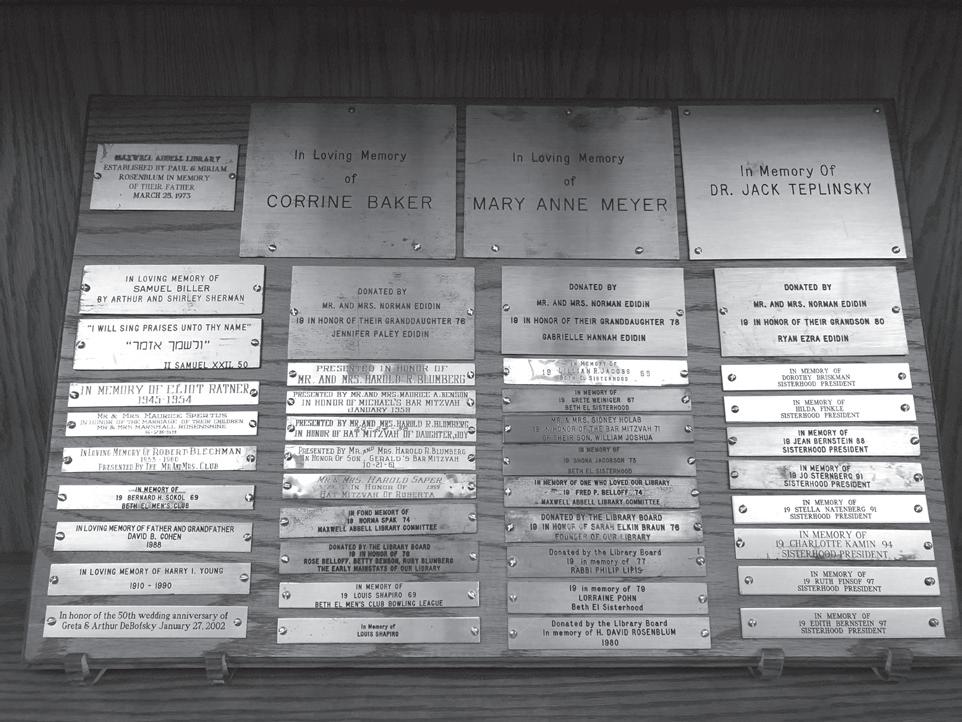 MAXWELL ABBELL LIBRARY
ESTABLISHED BY PAUL & MIRIAM
ROSENBLUM IN MEMORY
OF THEIR FATHER
MARCH 25, 1973
In Loving Memory
of
CORRINE BAKER
In Loving Memory
of
MARY ANNE MEYER
In Memory Of
DR. JACK TEPLINSKY
IN LOVING MEMORY OF
SAMUEL BILLER
BY ARTHUR AND SHIRLEY SHERMAN
"I WILL SING PRAISES UNTO THY NAME"
"ולשמך אזמר"
II SAMUEL XXII, 50
IN MEMORY OF ELIOT RATNER
1945-1954
MR & MRS. MAURICE SPERTUS
IN HONOR OF THE MARRIAGE OF THEIR CHILDREN
MR & MRS MARSHALL ROSENSHINE
IN LOVING MEMORY OF ROBERT BLECHMAN
PRESENTED BY THE MR. AND MRS. CLUB
IN MEMORY OF
19 BERNARD H. SOKOL 69
BETH EL MEN'S CLUB
IN LOVING MEMORY OF FATHER AND GRANDFATHER
DAVID B. COHEN
1988
IN LOVING MEMORY OF HARRY I. YOUNG
1910 - 1990
In honor of the 50th wedding anniversary of
Greta & Arthur DeBofsky January 27, 2002
DONATED BY
MR. AND MRS. NORMAN EDIDIN
19 IN HONOR OF THEIR GRANDDAUGHTER 76
JENNIFER PALEY EDIDIN
PRESENTED IN HONOR OF
MR. AND MRS. HAROLD R. BLUMBERG
PRESENTED BY MR. AND MRS. MAURICE A. BENSON
IN HONOR OF MICHAEL'S BAR MITZVAH
JANUARY 1958
PRESENTED BY MR. AND MRS. HAROLD R. BLUMBERG
IN HONOR OF BAT MITZVAH OF DAUGHTER, JOY
PRESENTED BY MR. AND MRS. HAROLD R. BLUMBERG
IN HONOR OF SON, GERALD'S BAR MITZVAH
10-21-61
MR. & MRS. HAROLD SAPER
IN HONOR OF
BAT MITZVAH OF ROBERTA
IN FOND MEMORY OF
19 NORMA SPAK 74
MAXWELL ABBELL LIBRARY COMMITTEE
DONATED BY THE LIBRARY BOARD
19 IN HONOR OF 76
ROSE BELLOFF, BETTY BENSON, RUBY BLUMBERG
THE EARLY MAINSTAYS OF OUR LIBRARY
IN MEMORY OF
19 LOUIS SHAPIRO 69
BETH EL MEN'S CLUB BOWLING LEAGUE
In Memory of
LOUIS SHAPIRO
DONATED BY
MR. AND MRS. NORMAN EDIDIN
19 IN HONOR OF THEIR GRANDDAUGHTER 78
GABRIELLE HANNAH EDIDIN
IN MEMORY OF
19 LILLIAN R. JACOBS 65
BETH EL SISTERHOOD
IN MEMORY OF
19 GRETE WEINIGER 67
BETH EL SISTERHOOD
MR. & MRS. SIDNEY HOLAB
19 IN HONOR OF THE BAR MITZVAH 71
OF THEIR SON, WILLIAM JOSHUA
IN MEMORY OF
19 SHONA JACOBSON 73
BETH EL SISTERHOOD
IN MEMORY OF ONE WHO LOVED OUR LIBRARY
19 FRED P. BELLOFF 74
MAXWELL ABBELL LIBRARY COMMITTEE
DONATED BY THE LIBRARY BOARD
19 IN HONOR OF SARAH ELKIN BRAUN 76
FOUNDER OF OUR LIBRARY
Donated by the Library Board
19 in memory of 77
RABBI PHILIP LIPIS
19 in memory of 79
LORRAINE POHN
Beth El Sisterhood
Donated by the Library Board
In memory of H. DAVID ROSENBLUM
1980
DONATED BY
MR. AND MRS. NORMAN EDIDIN
19 IN HONOR OF THEIR GRANDSON 80
RYAN EZRA EDIDIN
IN MEMORY OF
DOROTHY BRISKMAN
SISTERHOOD PRESIDENT
IN MEMORY OF
HILDA FINKLE
SISTERHOOD PRESIDENT
IN MEMORY OF
19 JEAN BERNSTEIN 88
SISTERHOOD PRESIDENT
IN MEMORY OF
19 JO STERNBERG 91
SISTERHOOD PRESIDENT
IN MEMORY OF
19 STELLA NATENBERG 91
SISTERHOOD PRESIDENT
IN MEMORY OF
19 CHARLOTTE KAMIN 94
SISTERHOOD PRESIDENT
IN MEMORY OF
19 RUTH FINSOF 97
SISTERHOOD PRESIDENT
IN MEMORY OF
19 EDITH BERNSTEIN 97
SISTERHOOD PRESIDENT